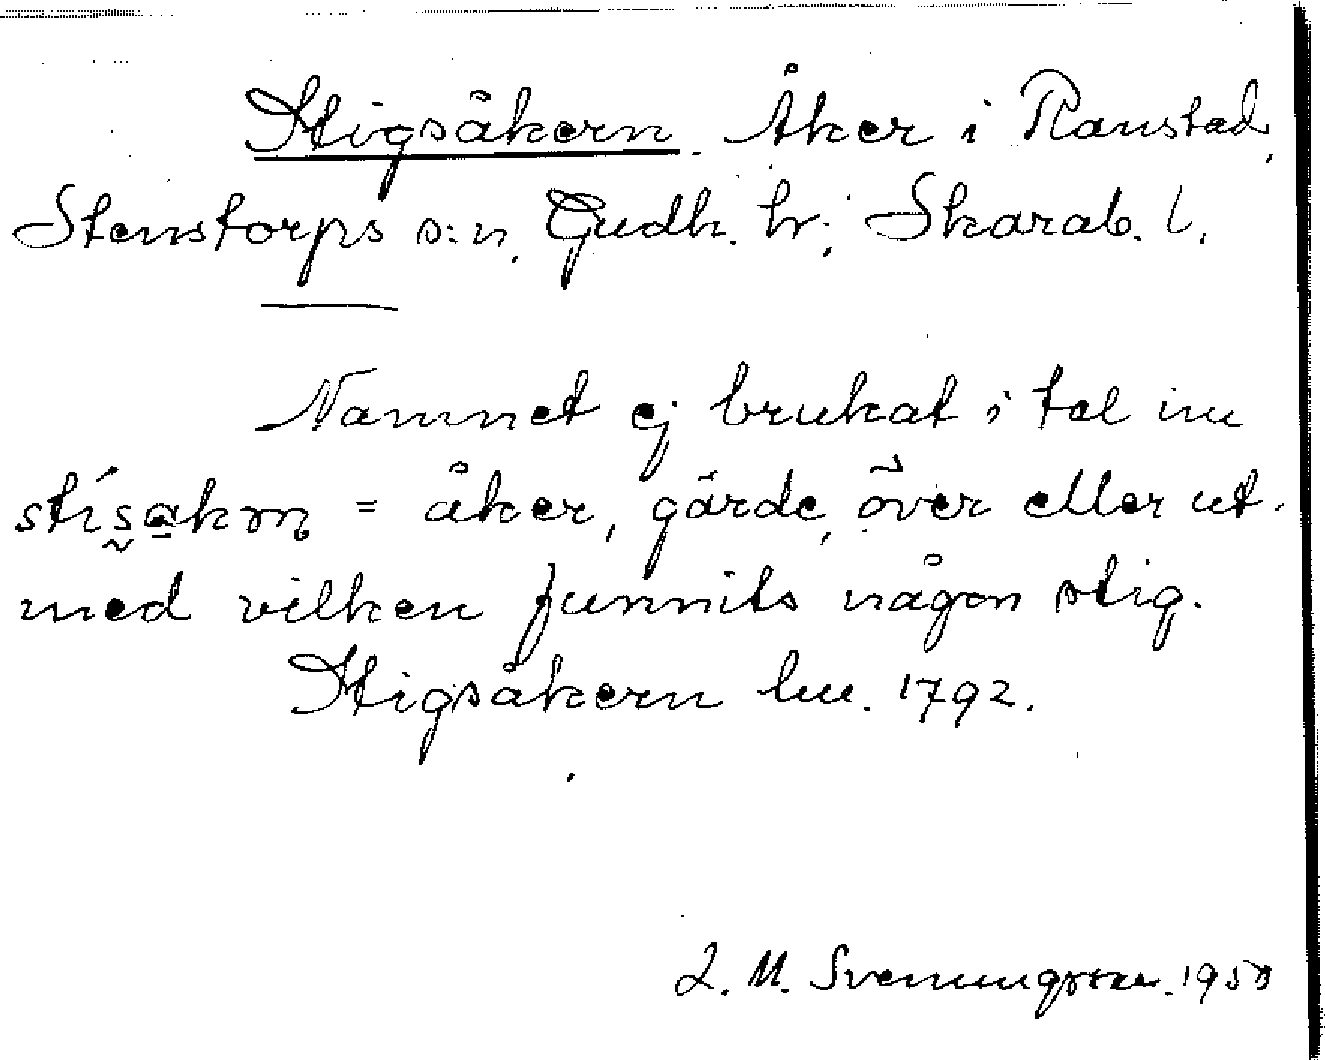 Stigsåkern. Åker i Ranstad,
Stenstorps s:n, Gudh. hr; Skarab. l.
Namnet ej brukat i tal nu
stísakrn = åker, gärde, över eller ut-
med vilken funnits någon stig.
Stigsåkern lm. 1792.
L. M. Svenungsson. 1950